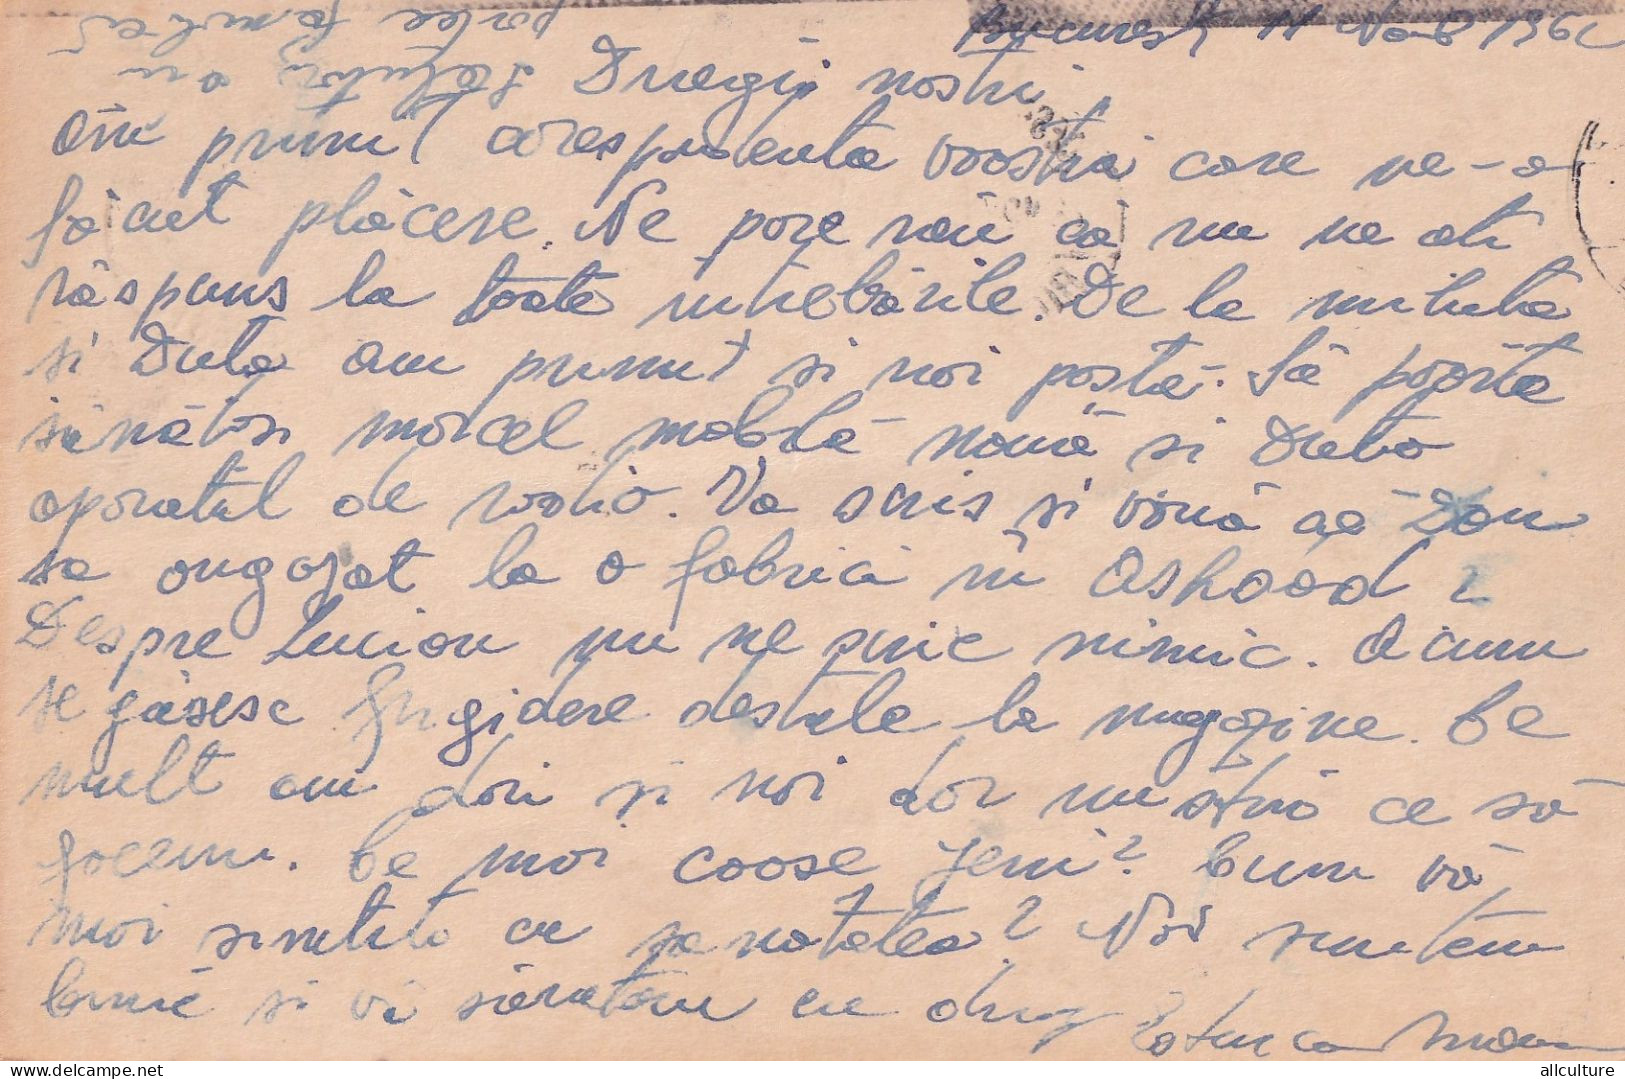 București 11 Noemb 1962
Dragii noștri,
Am primit corespondenta voastră care ne-a
făcut plăcere. Ne pare rău că nu ne ati
răspuns la toate intrebările. De la
si Duta am primit si noi postă. Să poarte
sănătosi marcel mobilă nouă si Duta
aparatul de radio. Va scris si vouă că Dan
sa angajat la o fabrică in Ashdod ?
Despre Lucian nu ne scrie nimic. Acum
se găsesc frigidere destule la magazine. Ce
mult am dori si noi dar nu știu ce să
facem. Ce mai coase Jeni? Cum vă
mai simtiti cu sanatatea? Noi suntem
bine si vă sărutăm cu drag
Saluturi din
partea familiei
allculture